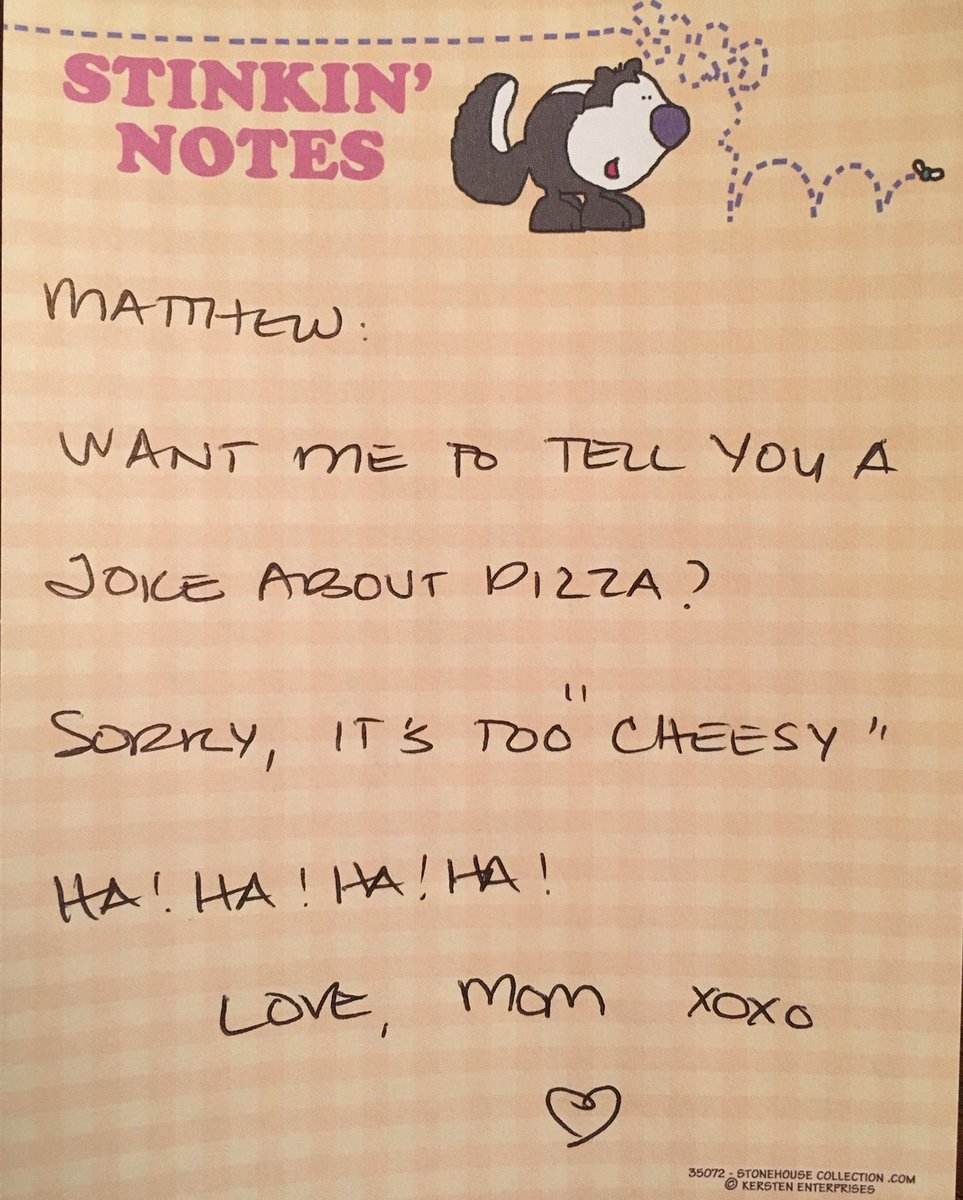 STINKIN'
NOTES
MATTHEW:
WANT ME TO TELL YOU A
JOKE ABOUT PIZZA?
SORRY, IT'S TOO "CHEESY"
HA! HA! HA! HA!
LOVE, MOM XOXO
35072 - STONEHOUSE COLLECTION .COM
© KERSTEN ENTERPRISES